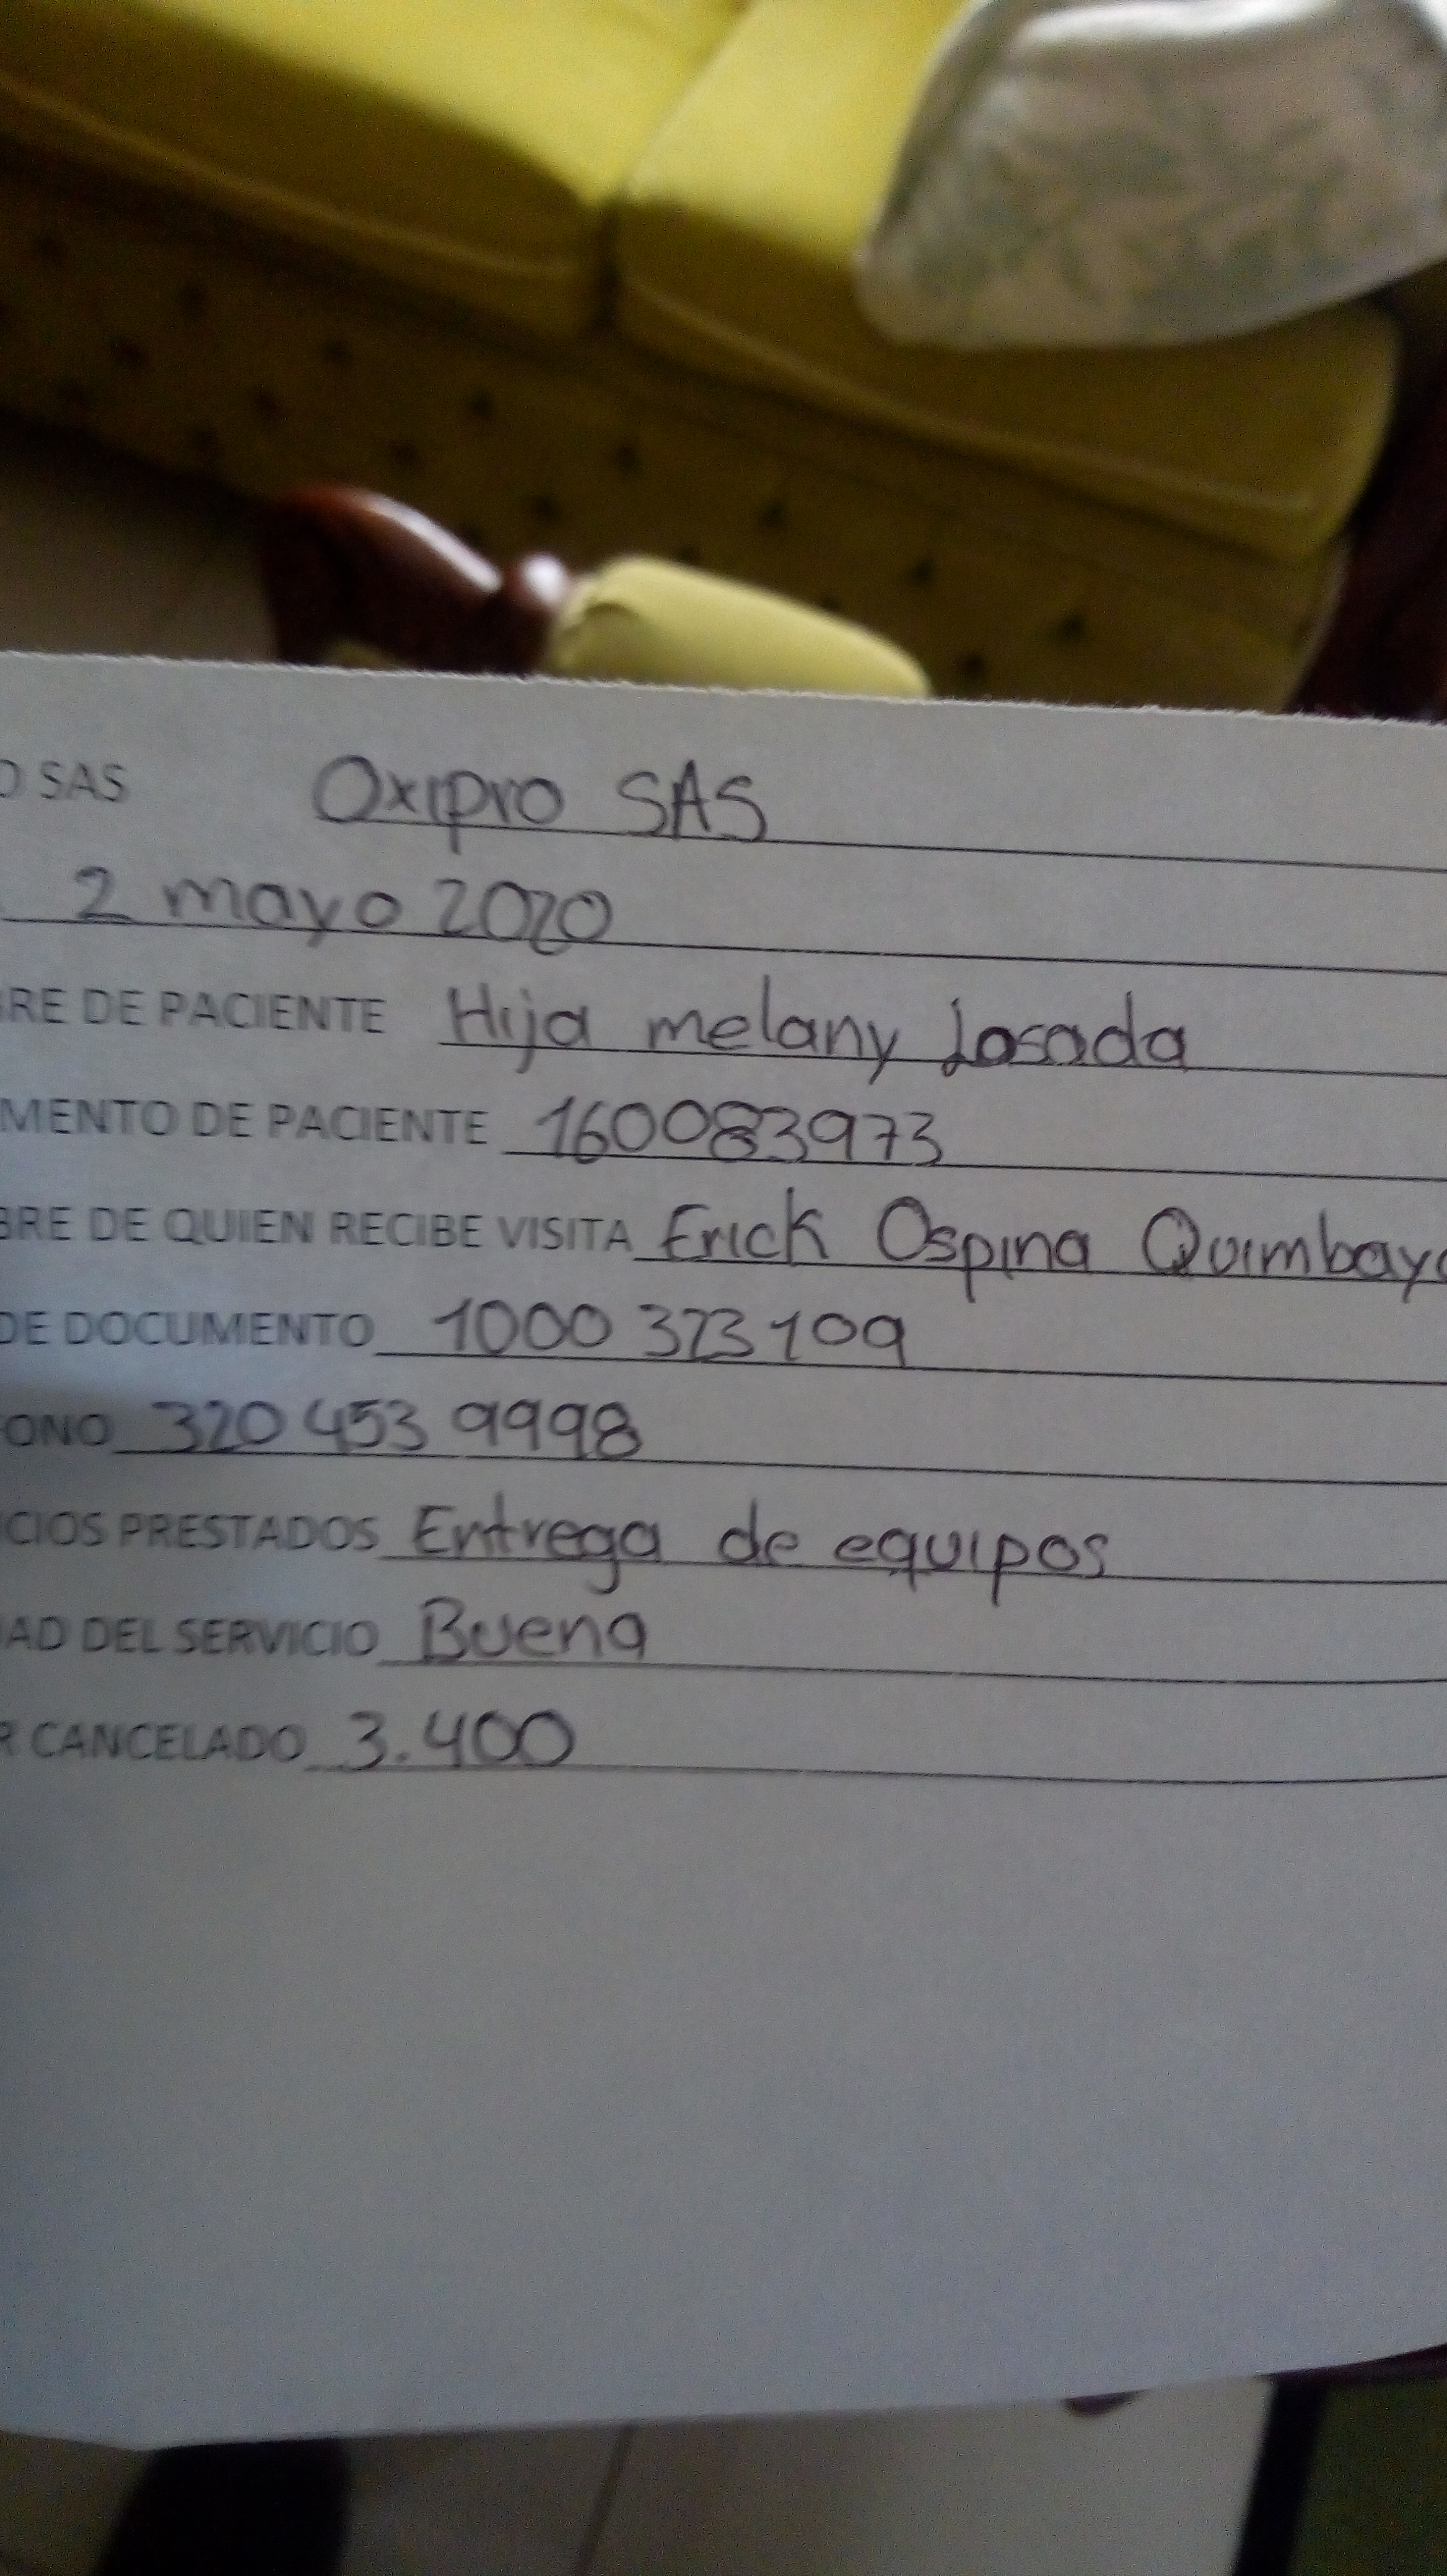 O SAS Oxipro SAS
2 mayo 2020
BRE DE PACIENTE Hija melany Losada
MENTO DE PACIENTE 160083973
BRE DE QUIEN RECIBE VISITA Erick Ospina Quimbaya
DE DOCUMENTO 1000 323 109
FONO 320 453 9998
CIOS PRESTADOS Entrega de equipos
AD DEL SERVICIO Buena
R CANCELADO 3.400